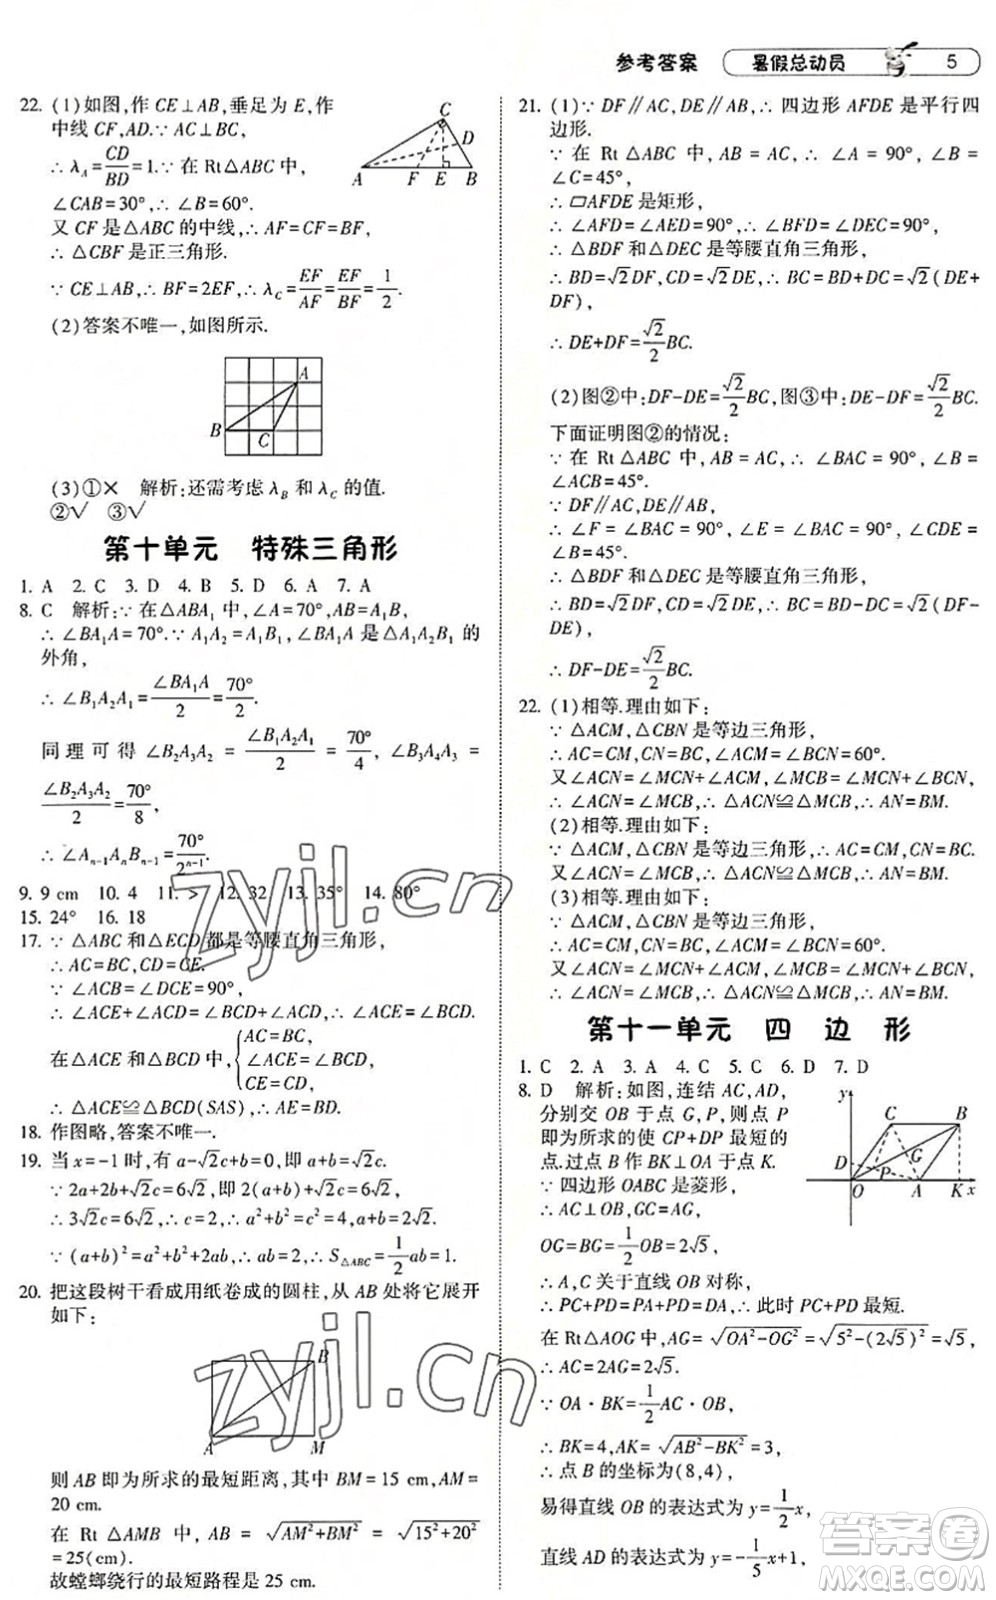 参考答案 暑假总动员 5
22. (1)如图,作 CE⊥AB,垂足为 E,作
中线 CF,AD.∵ AC⊥BC,
∴ λ_A=CD/BD=1.∵ 在 Rt△ABC 中,
∠CAB=30°,∴ ∠B=60°.
又 CF 是△ABC 的中线,∴ AF=CF=BF,
∴ △CBF 是正三角形.
∵ CE⊥AB,∴ BF=2EF,∴ λ_C=EF/AF=EF/BF=1/2.
(2)答案不唯一,如图所示.
(3)①✕ 解析:还需考虑 λ_B 和 λ_C 的值.
②√ ③√
第十单元 特殊三角形
1. A 2. C 3. D 4. B 5. D 6. A 7. A
8. C 解析:∵ 在△ABA₁ 中,∠A=70°,AB=A₁B,
∴ ∠BA₁A=70°.∵ A₁A₂=A₁B₁,∠BA₁A 是△A₁A₂B₁ 的
外角,
∴ ∠B₁A₂A₁=∠BA₁A/2=70°/2.
同理可得 ∠B₂A₃A₂ = ∠B₁A₂A₁/2 = 70°/4, ∠B₃A₄A₃ =
∠B₂A₃A₂/2=70°/8,
∴ ∠Aₙ₋₁AₙBₙ₋₁=70°/2ⁿ⁻¹.
9. 9 cm 10. 4 11. > 12. 32 13. 35° 14. 80°
15. 24° 16. 18
17. ∵ △ABC 和△ECD 都是等腰直角三角形,
∴ AC=BC,CD=CE.
∵ ∠ACB=∠DCE=90°,
∴ ∠ACE+∠ACD=∠BCD+∠ACD,∴ ∠ACE=∠BCD.
在△ACE 和△BCD 中,{AC=BC,
∠ACE=∠BCD,
CE=CD,
∴ △ACE≌△BCD(SAS),∴ AE=BD.
18. 作图略,答案不唯一.
19. 当 x=-1 时,有 a-√2c+b=0,即 a+b=√2c.
∵ 2a+2b+√2c=6√2,即 2(a+b)+√2c=6√2,
∴ 3√2c=6√2,∴ c=2,∴ a²+b²=c²=4,a+b=2√2.
∵ (a+b)²=a²+b²+2ab,∴ ab=2,∴ S△ABC=1/2ab=1.
20. 把这段树干看成用纸卷成的圆柱,从 AB 处将它展开
如下:
则 AB 即为所求的最短距离,其中 BM=15 cm,AM=
20 cm.
在 Rt△AMB 中,AB=√(AM²+BM²)=√(15²+20²)
=25(cm).
故螳螂绕行的最短路程是 25 cm.
21. (1)∵ DF∥AC,DE∥AB,∴ 四边形 AFDE 是平行四
边形.
∵ 在 Rt△ABC 中,AB=AC,∴ ∠A=90°,∠B=
∠C=45°,
∴ ▱AFDE 是矩形,
∴ ∠AFD=∠AED=90°,∴ ∠BFD=∠DEC=90°,
∴ △BDF 和△DEC 是等腰直角三角形,
∴ BD=√2DF,CD=√2DE,∴ BC=BD+DC=√2(DE+
DF),
∴ DE+DF=√2/2BC.
(2)图②中:DF-DE=√2/2BC,图③中:DE-DF=√2/2BC.
下面证明图②的情况:
∵ 在 Rt△ABC 中,AB=AC,∴ ∠BAC=90°,∠B=
∠ACB=45°.
∵ DF∥AC,DE∥AB,
∴ ∠F=∠BAC=90°,∠E=∠BAC=90°,∠CDE=
∠B=45°,
∴ △BDF 和△DEC 是等腰直角三角形,
∴ BD=√2DF,CD=√2DE,∴ BC=BD-DC=√2(DF-
DE),
∴ DF-DE=√2/2BC.
22. (1)相等.理由如下:
∵ △ACM,△CBN 是等边三角形,
∴ AC=CM,CN=BC,∠ACM=∠BCN=60°.
又∠ACM+∠MCN=∠ACM,∠BCM=∠MCN+∠BCN,
∴ ∠ACN=∠MCB,∴ △ACN≌△MCB,∴ AN=BM.
(2)相等.理由如下:
∵ △ACM,△CBN 是等边三角形,
∴ AC=CM,CN=BC,∠ACM=∠BCN=60°,
∴ △ACN≌△MCB,∴ AN=BM.
(3)相等.理由如下:
∵ △ACM,△CBN 是等边三角形,
∴ AC=CM,CN=BC,∠ACM=∠BCN=60°.
又∠ACN=∠MCN+∠ACM,∠BCM=∠MCN+∠BCN,
∴ ∠ACN=∠MCB,∴ △ACN≌△MCB,∴ AN=BM.
第十一单元 四 边 形
1. C 2. A 3. A 4. C 5. C 6. D 7. D
8. D 解析:如图,连结 AC,AD,
分别交 OB 于点 G,P,则点 P
即为所求的使 CP+DP 最短的
点.过点 B 作 BK⊥OA 于点 K.
∵ 四边形 OABC 是菱形,
∴ AC⊥OB,GC=AG,
OG=BG=2√5,
∴ A,C 关于直线 OB 对称,
∴ PC+PD=PA+PD=DA,∴ 此时 PC+PD 最短.
在 Rt△AOG 中,AG=√(OA²-OG²)=√(5²-(2√5)²)=√5,
∴ AC=2AG=2√5.
∵ OA·BK=1/2AC·OB,
∴ BK=4,AK=√(AB²-BK²)=3,
∴ 点 B 的坐标为(8,4),
易得直线 OB 的表达式为 y=1/2x,
直线 AD 的表达式为 y=-1/5x+1,